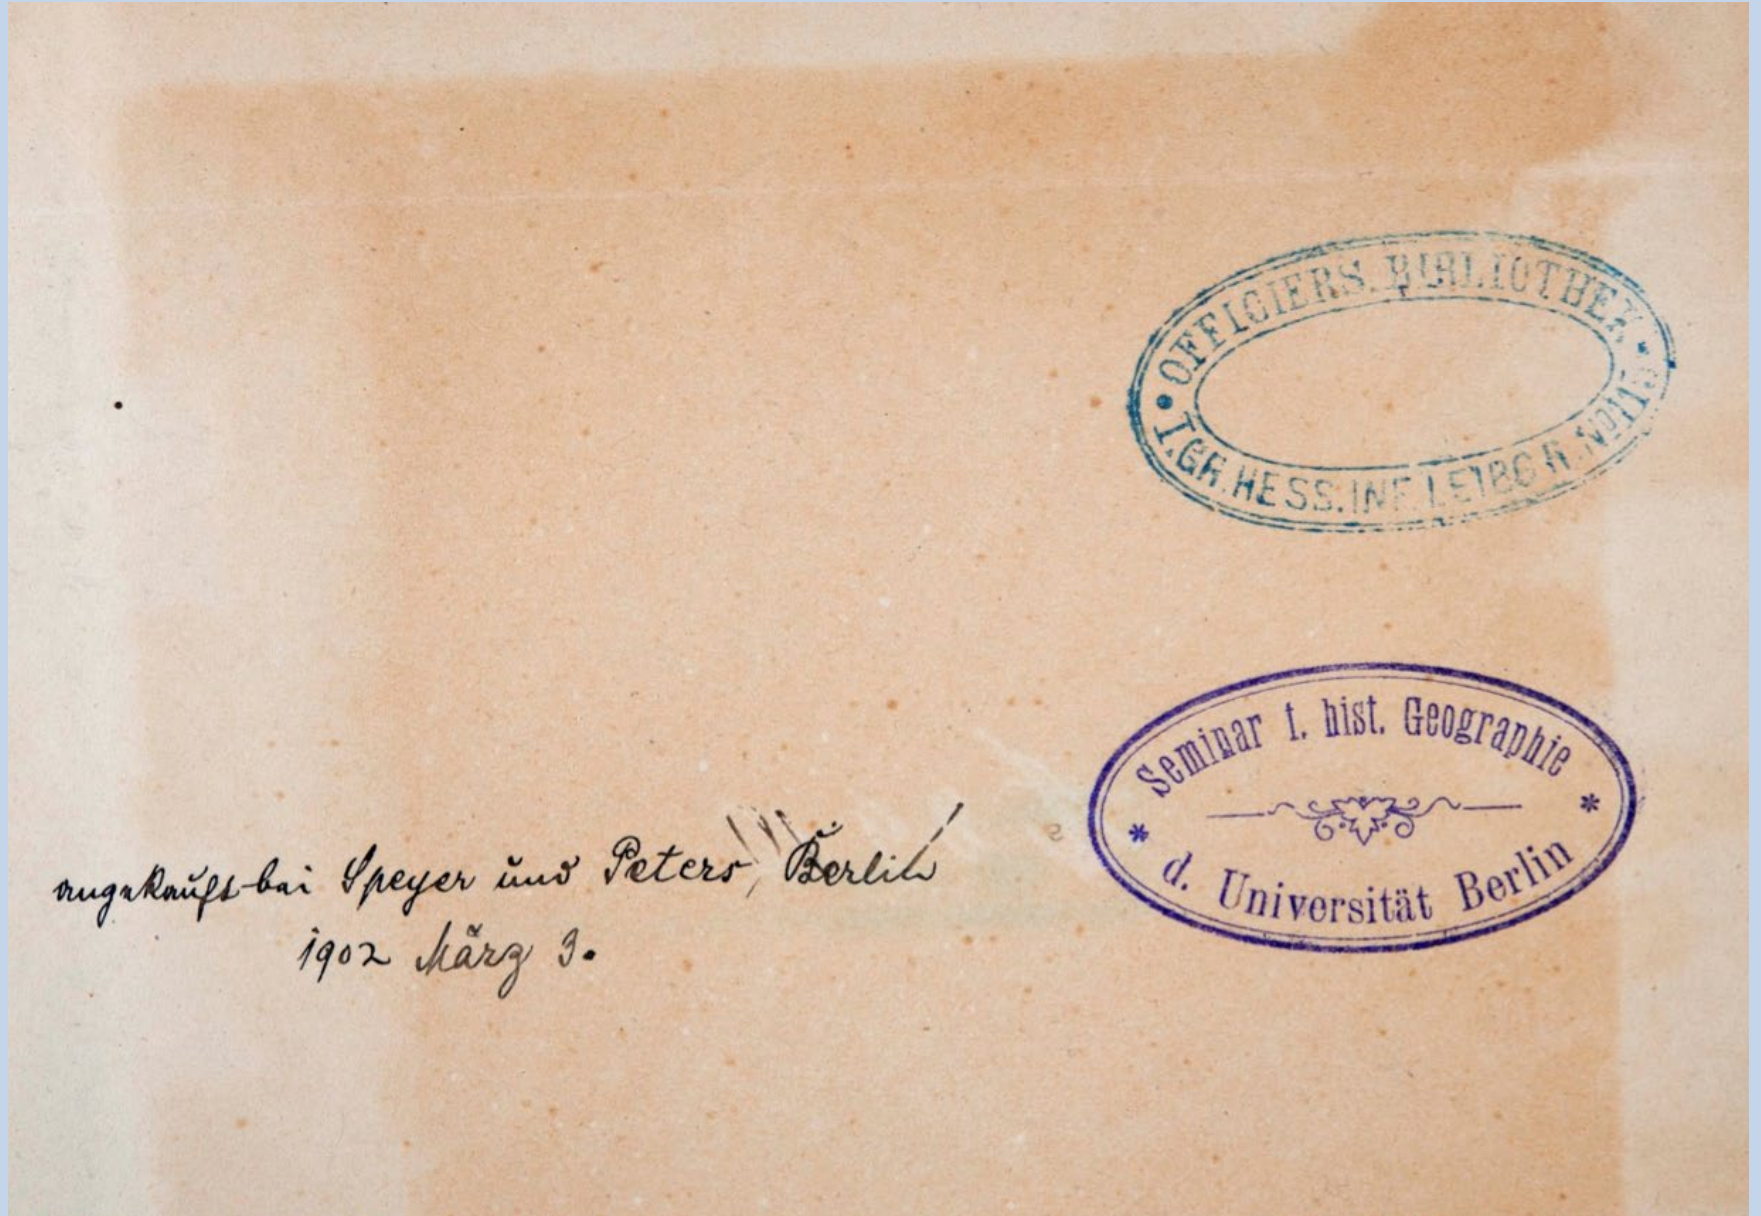 OFFICIERS. BIBLIOTHEK
I. GR. HESS. INF. LEIBG. R.
Seminar f. hist. Geographie
d. Universität Berlin
angekauft bei Speyer und Peters, Berlin
1902 März 3.